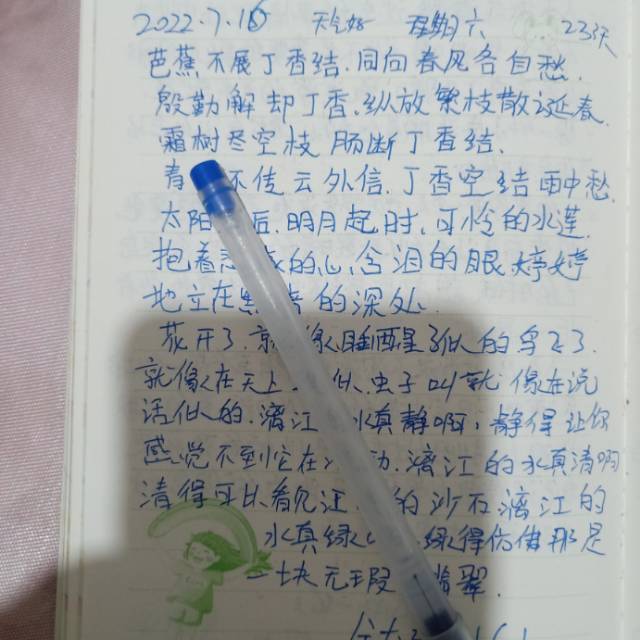 2022.7.16 星期六 23天
芭蕉不展丁香结.同向春风各自愁.
殷勤解却丁香.纵放繁枝散诞春.
霜树尽空枝.肠断丁香结.
青 不传云外信.丁香空结雨中愁.
太阳 后.明月起时.可怜的水莲
抱着 的心,含泪的眼婷婷
地立在 的深处.
花开了.就像睡醒了似的鸟飞了.
就像在天上 似.虫子叫就像在说
话似的.漓江 水真静啊,静得让你
感觉不到它在 动.漓江的水真清啊
清得可以看见江 的沙石漓江的
水真绿 绿得仿佛那是
一块无瑕 翡翠.